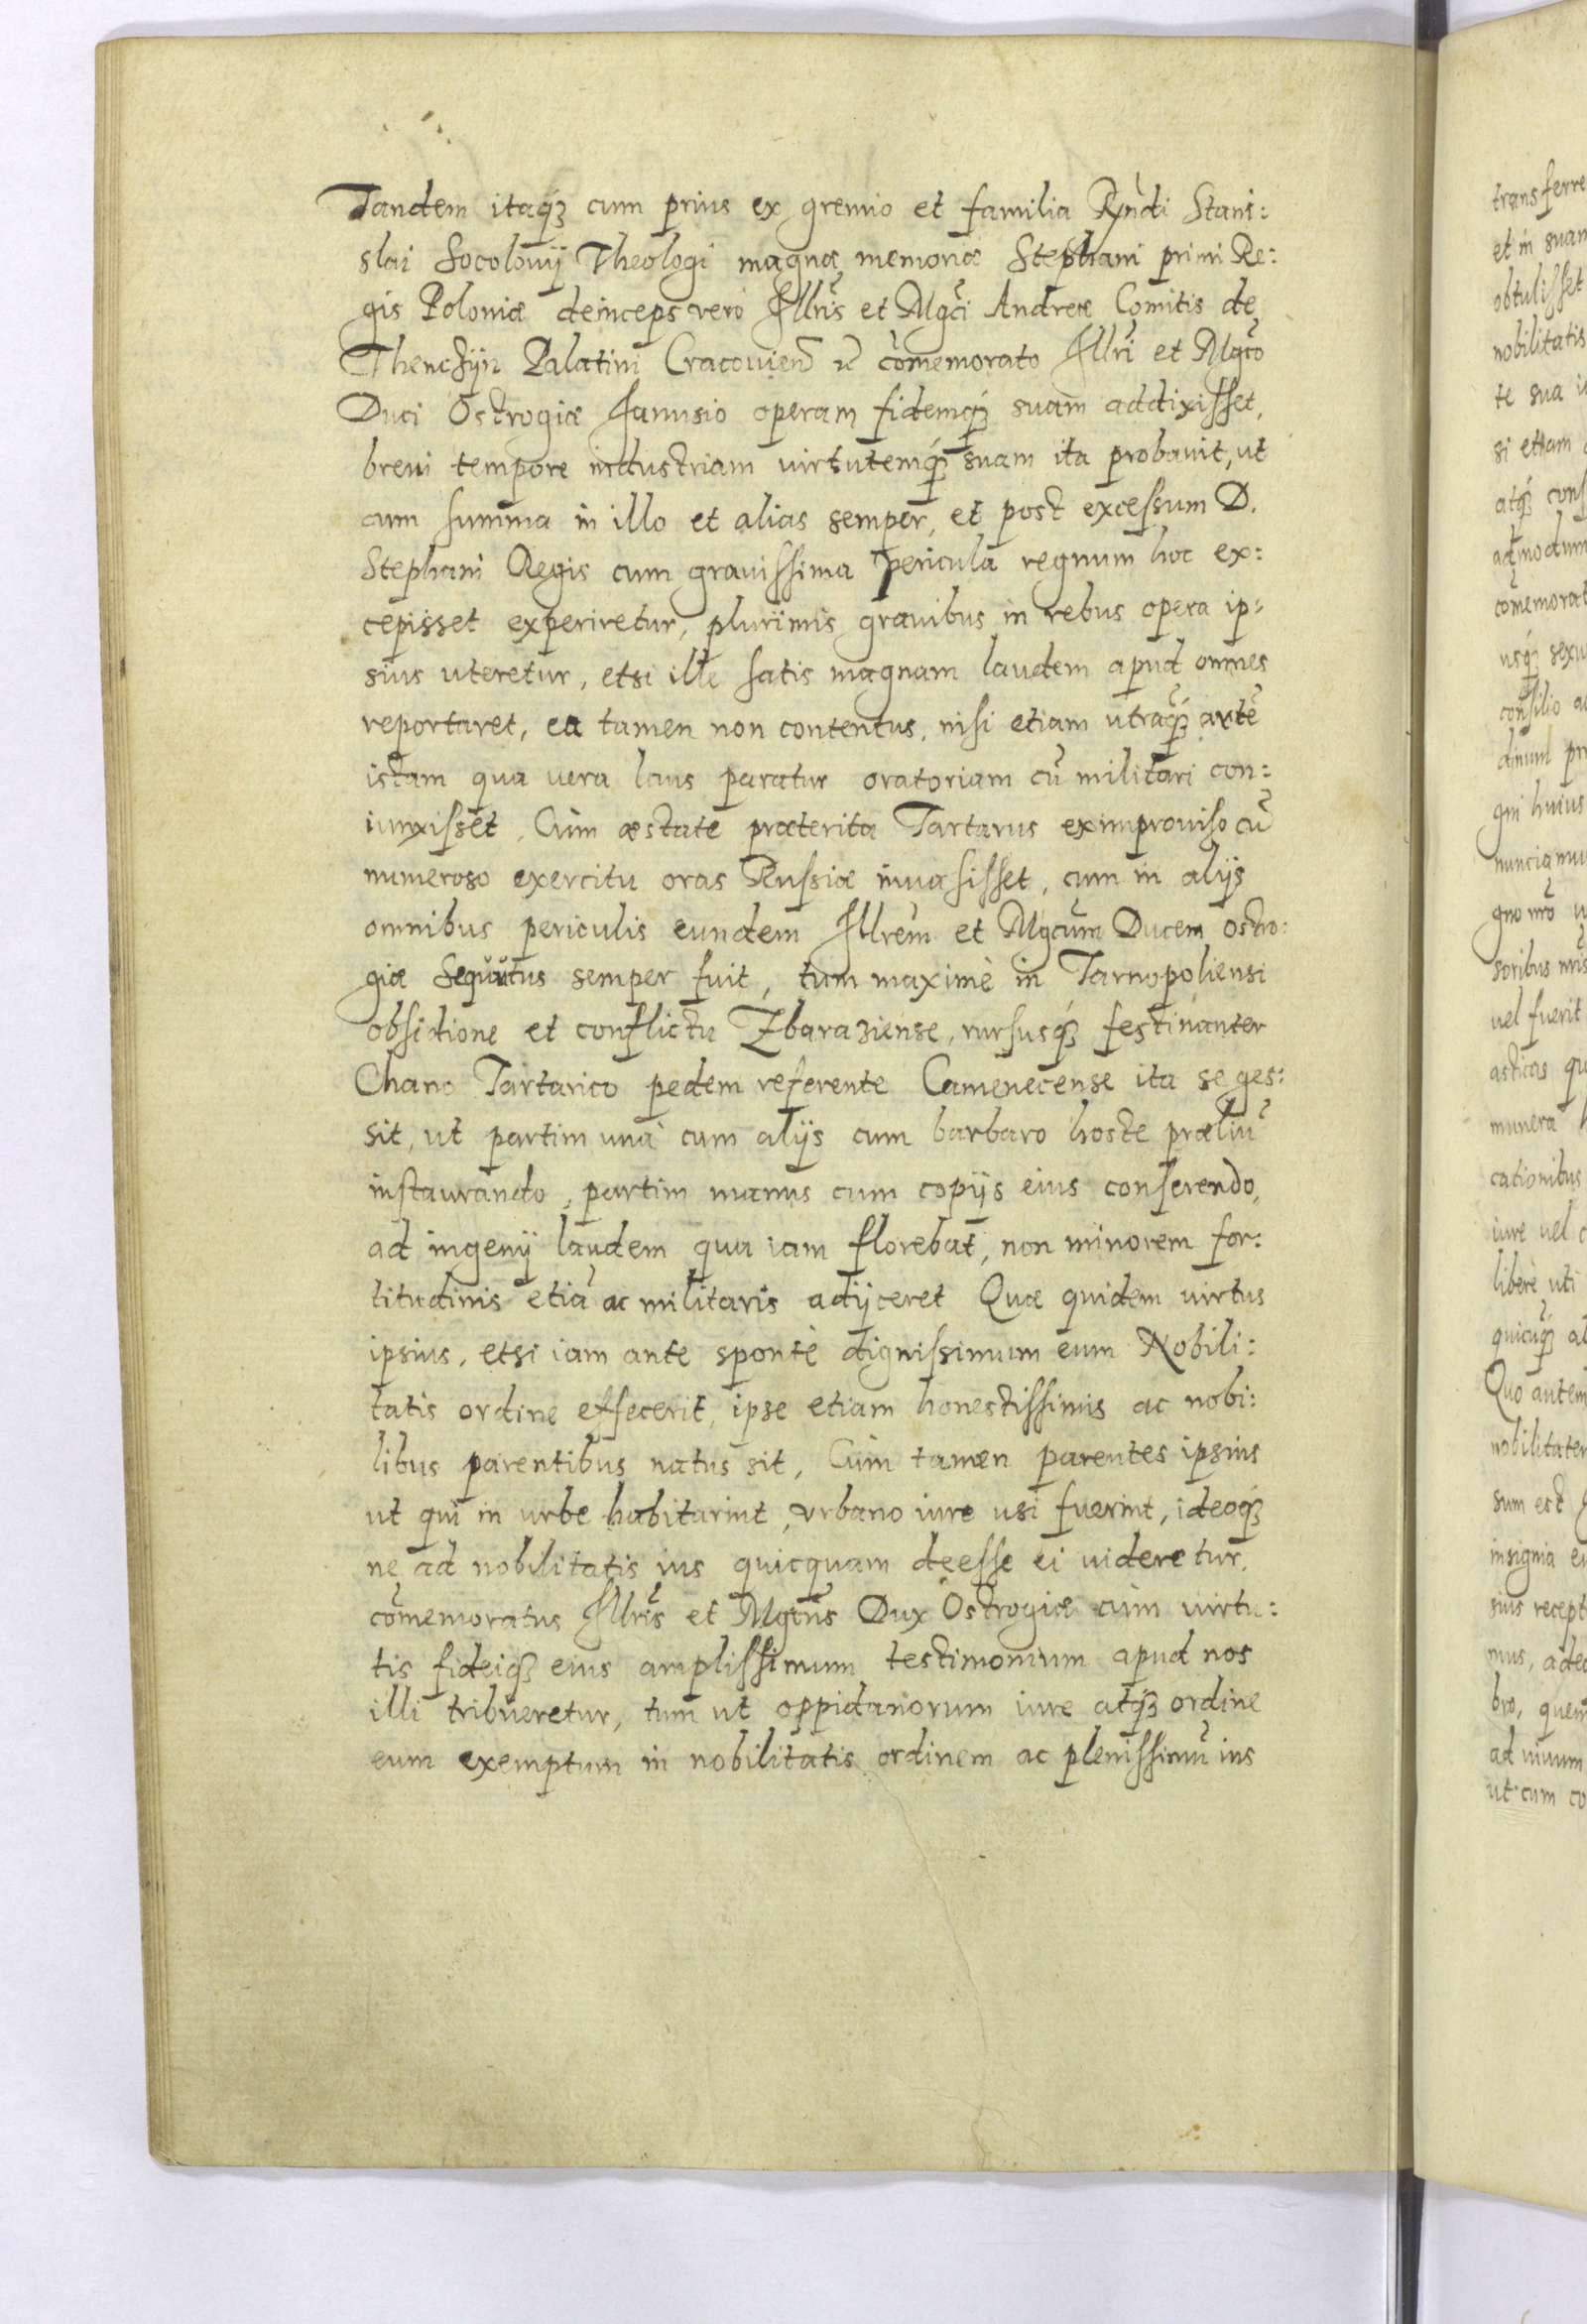 Tandem itaq́ꝫ cum prius ex gremio et familia Rndi Stanis:
slai Socolowij Theologi magnæ memoriæ Stephani primi Re:
gis Poloniæ deinceps vero Illris et Mgci Andreæ Comitis de
Thenczijn Palatini Cracouien̄ cōmemorato Illri et Mgco
Duci Ostrogiæ Janusio operam fidemq́ꝫ suam addixisset,
breui tempore industriam virtutemq́ꝫ suam ita probauit, ut
cum summa in illo et alias semper, et post excessum D.
Stephani Regis cum grauissima pericula regnum hoc ex:
cepisset experiretur, plurimis grauibus in rebus opera ip:
sius uteretur, etsi ille satis magnam laudem apud omnes
reportaret, ea tamen non contentus, nisi etiam utraq́ꝫ arte
istam qua vera laus paratur oratoriam cū militari con:
iunxisset. Cùm æstate præterita Tartarus eximprouiso cū
numeroso exercitu oras Russiæ inuasisset, cum in alijs
omnibus periculis eundem Illrem et Mgcum Ducem Ostro:
giæ sequutus semper fuit, tum maximè in Tarnopoliensi
obsidione et conflictu Zbaraziense, rursusq́ꝫ festinanter
Chano Tartarico pedem referente Camenecense ita se ges:
sit, ut partim unà cum alijs cum barbaro hoste præliū
instaurando, partim manus cum copijs eius conserendo,
ad ingenij laudem qua iam florebat, non minorem for:
titudinis etiā ac militaris adijceret Quæ quidem virtus
ipsius, etsi iam ante spontè dignissimum eum Nobili:
tatis ordine effecerit, ipse etiam honestissimis ac nobi:
libus parentibus natus sit, Cùm tamen parentes ipsius
ut qui in urbe habitarint, vrbano iure usi fuerint, ideoq́ꝫ
ne ad nobilitatis ius quicquam deesse ei uideretur,
cōmemoratus Illris et Mgcus Dux Ostrogiæ cùm virtu:
tis fideiqꝫ eius amplissimum testimonium apud nos
illi tribueretur, tum ut oppidanorum iure atq́ꝫ ordine
eum exemptum in nobilitatis ordinem ac plenissimū ius
transferre
et in suam
obtulisset
nobilitatis
te sua
si etiam
atq́ꝫ
admodum
cōmemorat
usq́ꝫ sexu
consilio
huius
nunciamu
gno nro
soribus nris
uel fuerit
asticas qu
munera h
cationibus
iure uel c
liberè uti
quicūq́ꝫ al
Quo autem
nobilitatem
sum est
insignia ei
suis recept
mus, adeo
bro, quem
ad uiuum
ut cum co